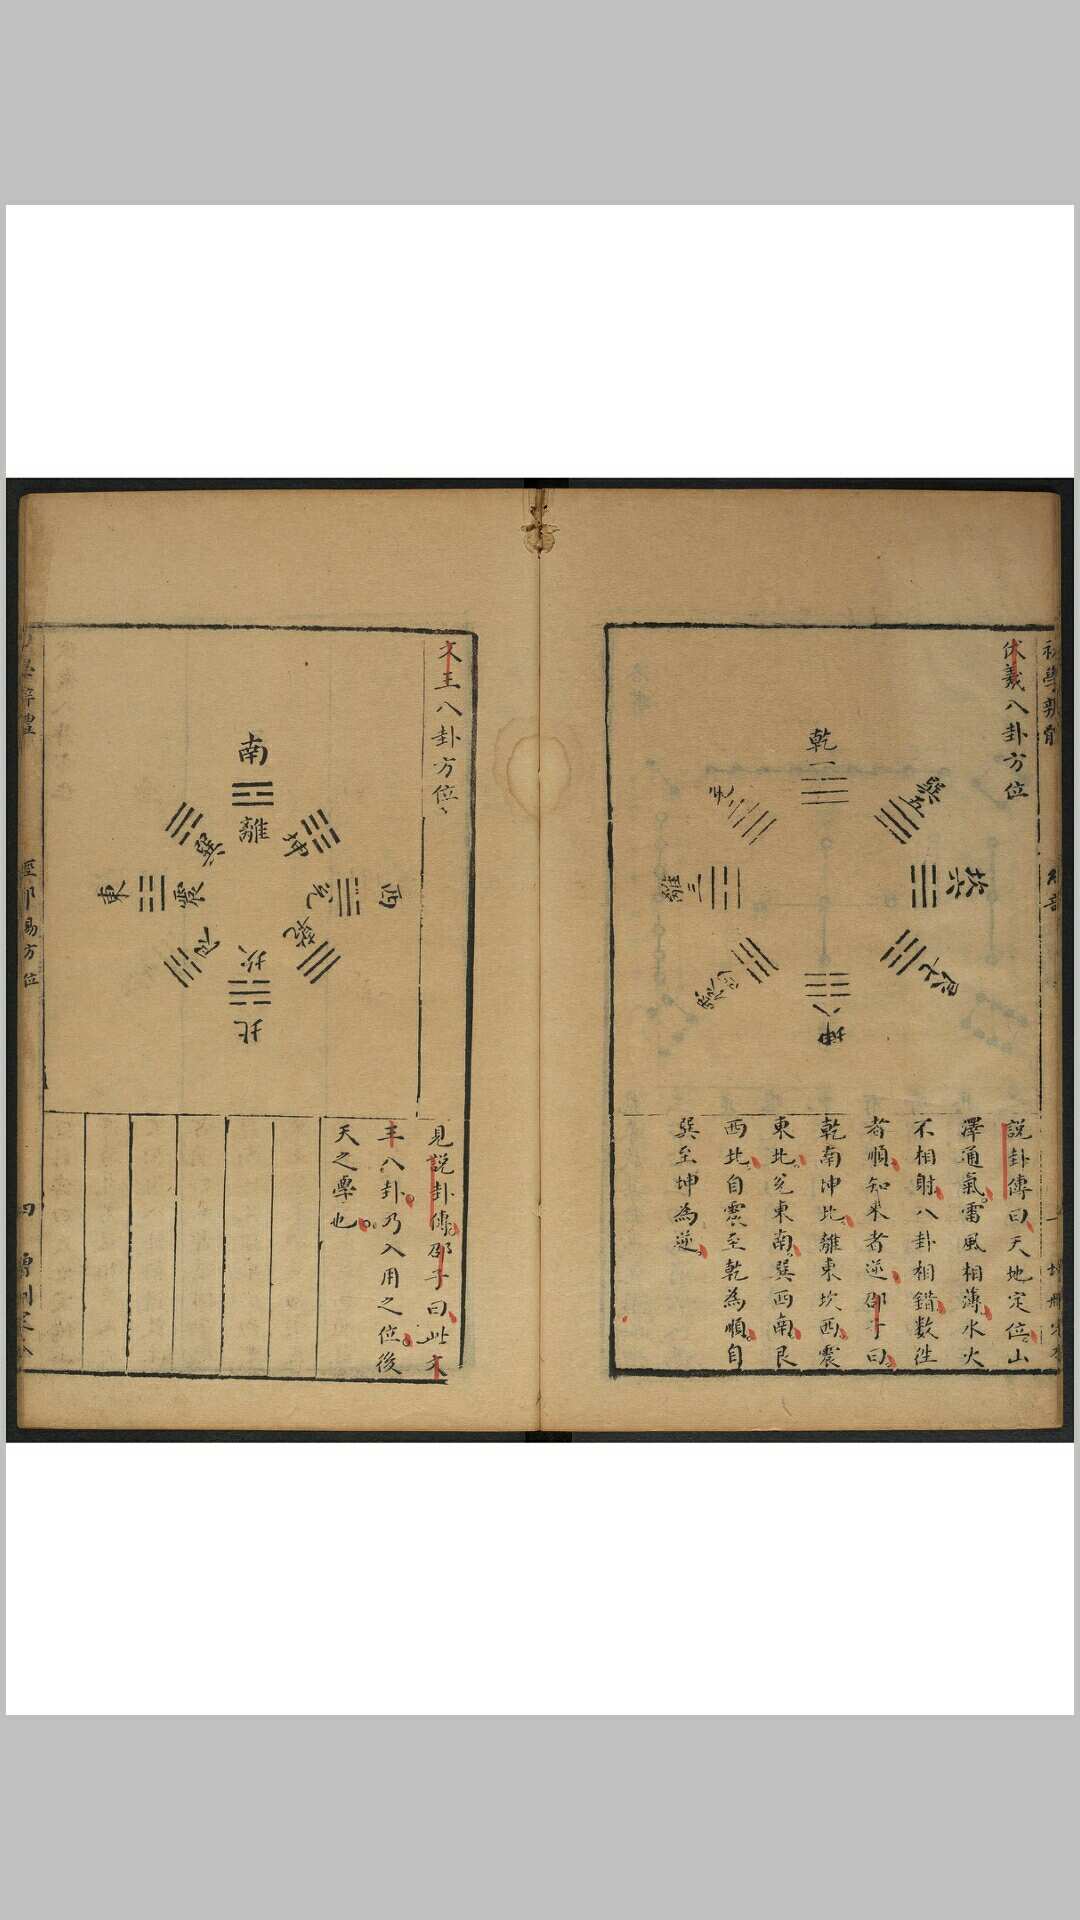 伏羲八卦方位
乾一
兌二
離三
震四
巽五
坎六
艮七
坤八
說卦傳曰天地定位山
澤通氣雷風相薄水火
不相射八卦相錯數徃
者順知来者逆邵子曰
乾南坤北離東坎西震
東北兌東南巽西南艮
西北自震至乾為順自
巽至坤為逆
文王八卦方位
南
離
坤
西
兌
乾
坎
北
艮
東
震
巽
見說卦傳邵子曰此文
王八卦乃入用之位後
天之學也
易方位
四